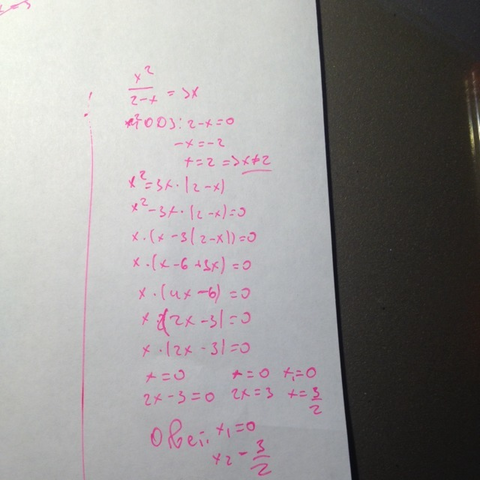 x²/(2-x) = 3x
ОДЗ: 2-x=0
-x=-2
x=2 => x≠2
x²=3x·(2-x)
x²-3x·(2-x)=0
x·(x-3(2-x))=0
x·(x-6+3x)=0
x·(4x-6)=0
x·2(2x-3)=0
x·(2x-3)=0
x=0 x=0 x₁=0
2x-3=0 2x=3 x=3/2
Ответ: x₁=0
x₂-3/2